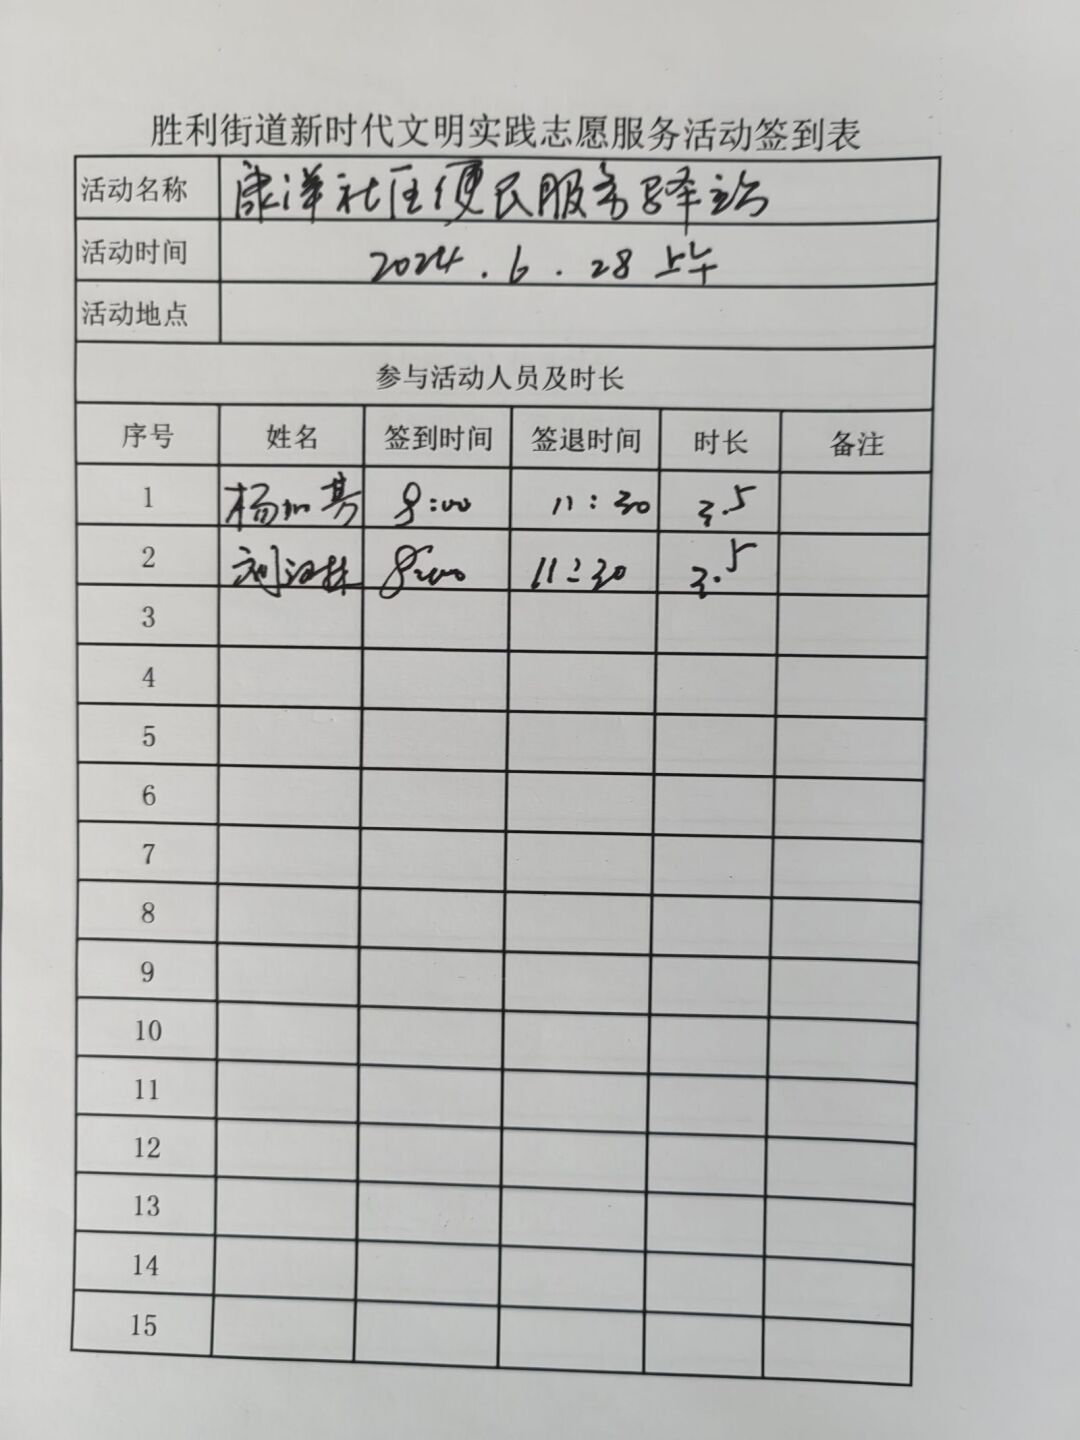 胜利街道新时代文明实践志愿服务活动签到表
活动名称 康洋社区便民服务驿站
活动时间 2024.6.28 上午
活动地点
参与活动人员及时长
序号 姓名 签到时间 签退时间 时长 备注
1 杨 8:00 11:30 3.5
2 刘汉林 8:00 11:30 3.5
3
4
5
6
7
8
9
10
11
12
13
14
15